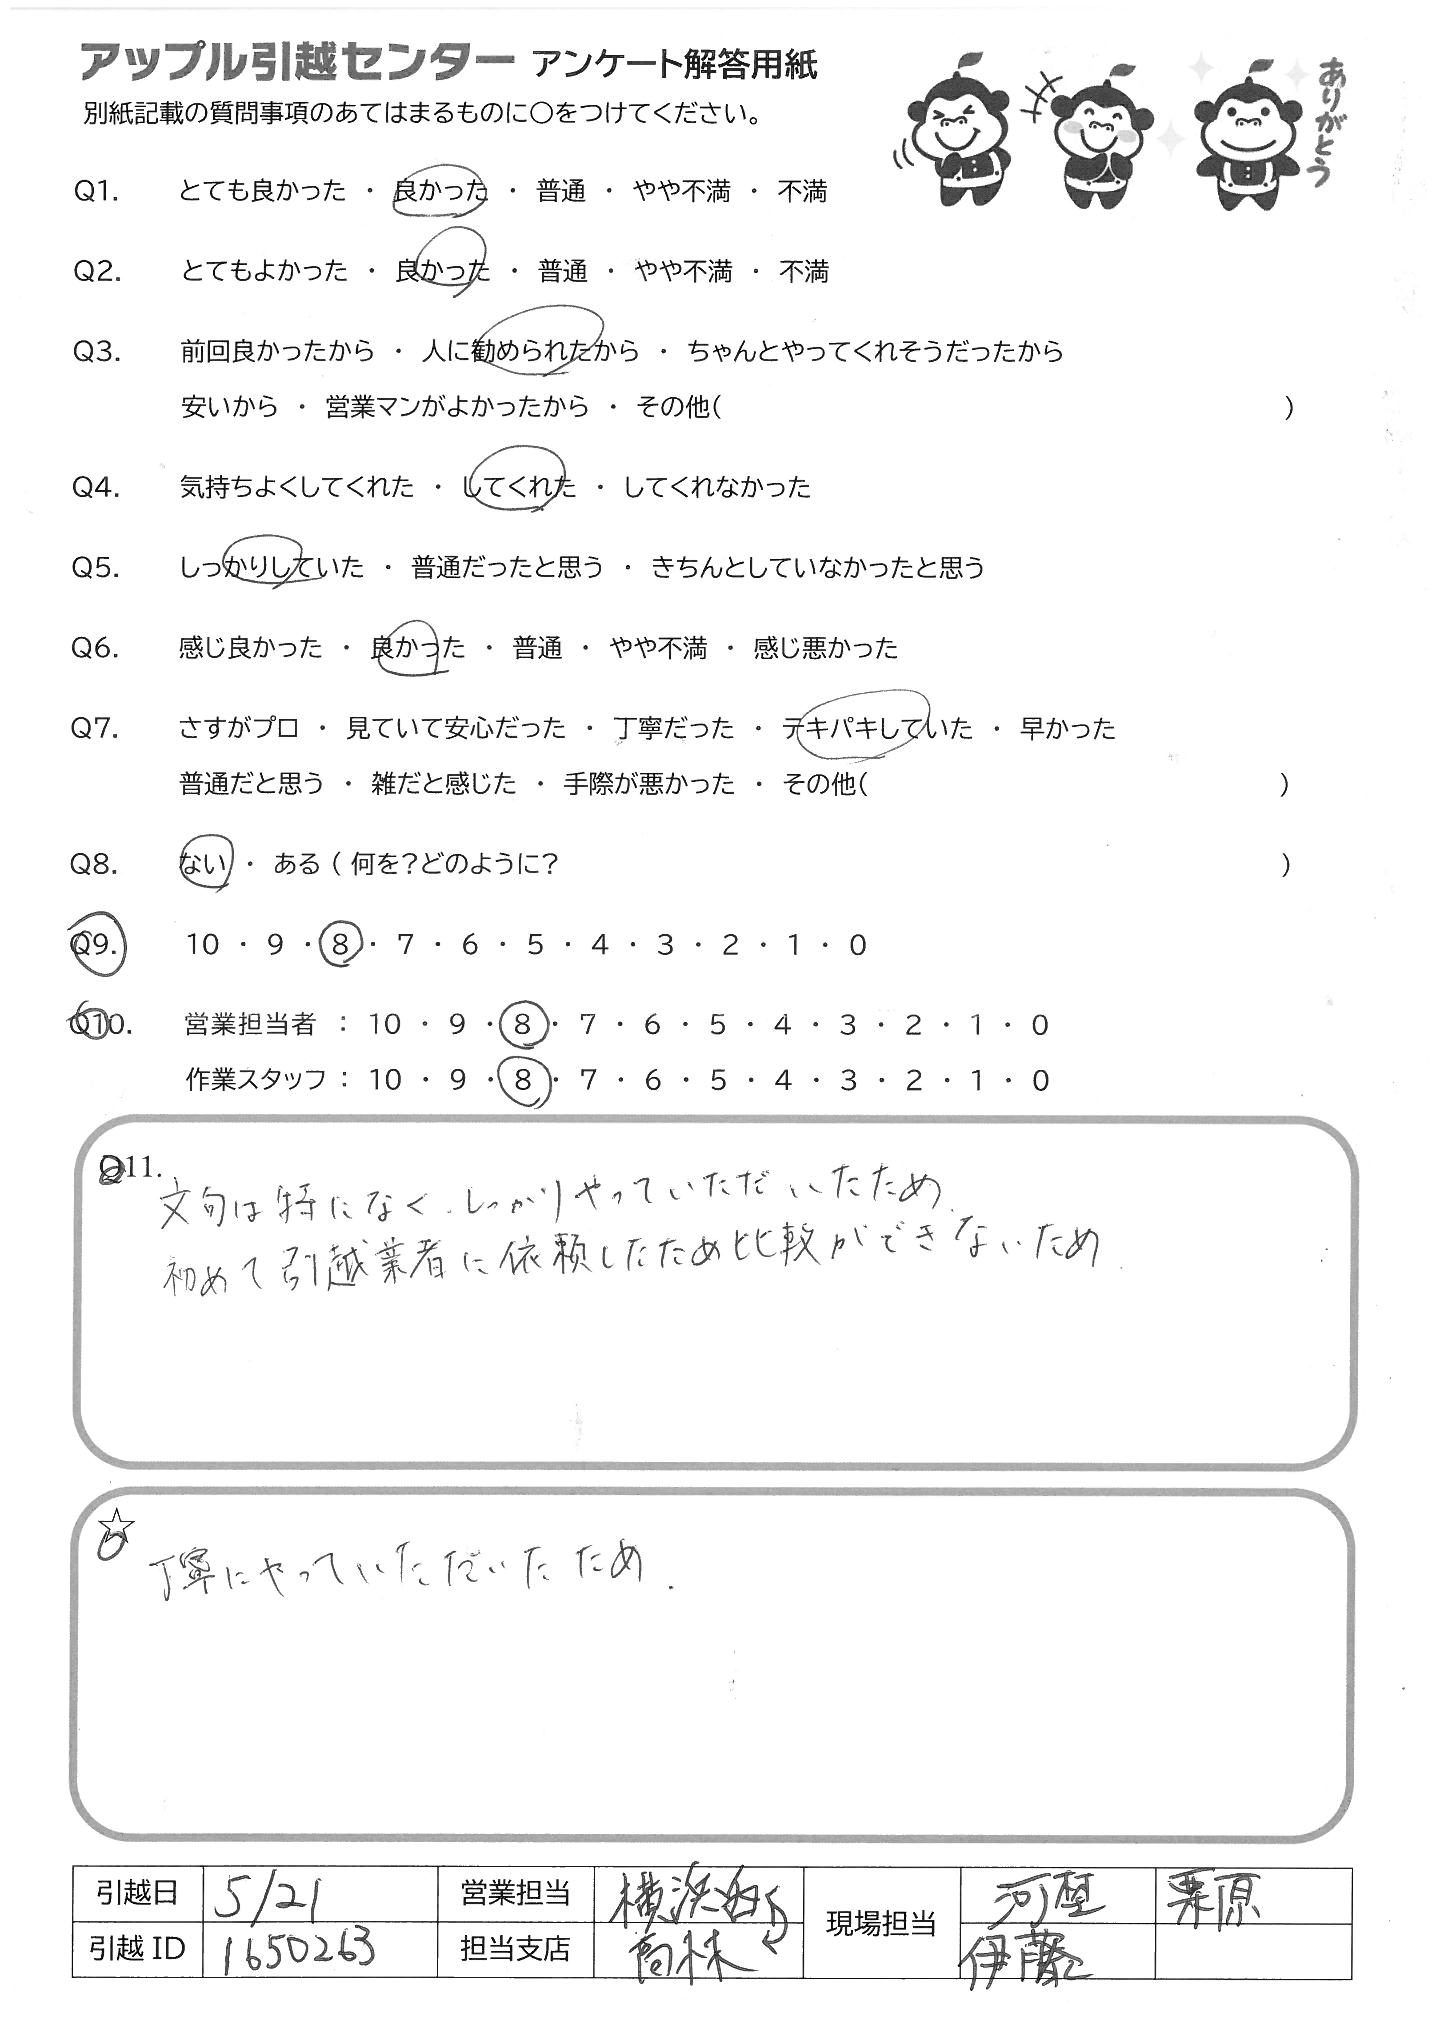 アップル引越センター アンケート解答用紙
ありがとう
別紙記載の質問事項のあてはまるものに○をつけてください。
Q1. とても良かった ・ 良かった ・ 普通 ・ やや不満 ・ 不満
Q2. とてもよかった ・ 良かった ・ 普通 ・ やや不満 ・ 不満
Q3. 前回良かったから ・ 人に勧められたから ・ ちゃんとやってくれそうだったから
安いから ・ 営業マンがよかったから ・ その他( )
Q4. 気持ちよくしてくれた ・ してくれた ・ してくれなかった
Q5. しっかりしていた ・ 普通だったと思う ・ きちんとしていなかったと思う
Q6. 感じ良かった ・ 良かった ・ 普通 ・ やや不満 ・ 感じ悪かった
Q7. さすがプロ ・ 見ていて安心だった ・ 丁寧だった ・ テキパキしていた ・ 早かった
普通だと思う ・ 雑だと感じた ・ 手際が悪かった ・ その他( )
Q8. ない ・ ある ( 何を?どのように? )
Q9. 10 ・ 9 ・ 8 ・ 7 ・ 6 ・ 5 ・ 4 ・ 3 ・ 2 ・ 1 ・ 0
Q10. 営業担当者 : 10 ・ 9 ・ 8 ・ 7 ・ 6 ・ 5 ・ 4 ・ 3 ・ 2 ・ 1 ・ 0
作業スタッフ : 10 ・ 9 ・ 8 ・ 7 ・ 6 ・ 5 ・ 4 ・ 3 ・ 2 ・ 1 ・ 0
Q11.
文句は特になく、しっかりやっていただいたため.
初めて引越業者に依頼したため比較ができないため.
☆
丁寧にやっていただいたため.
引越日 5/21 営業担当 横浜 現場担当 河埜 栗原
引越ID 1650263 担当支店 高林 伊藤